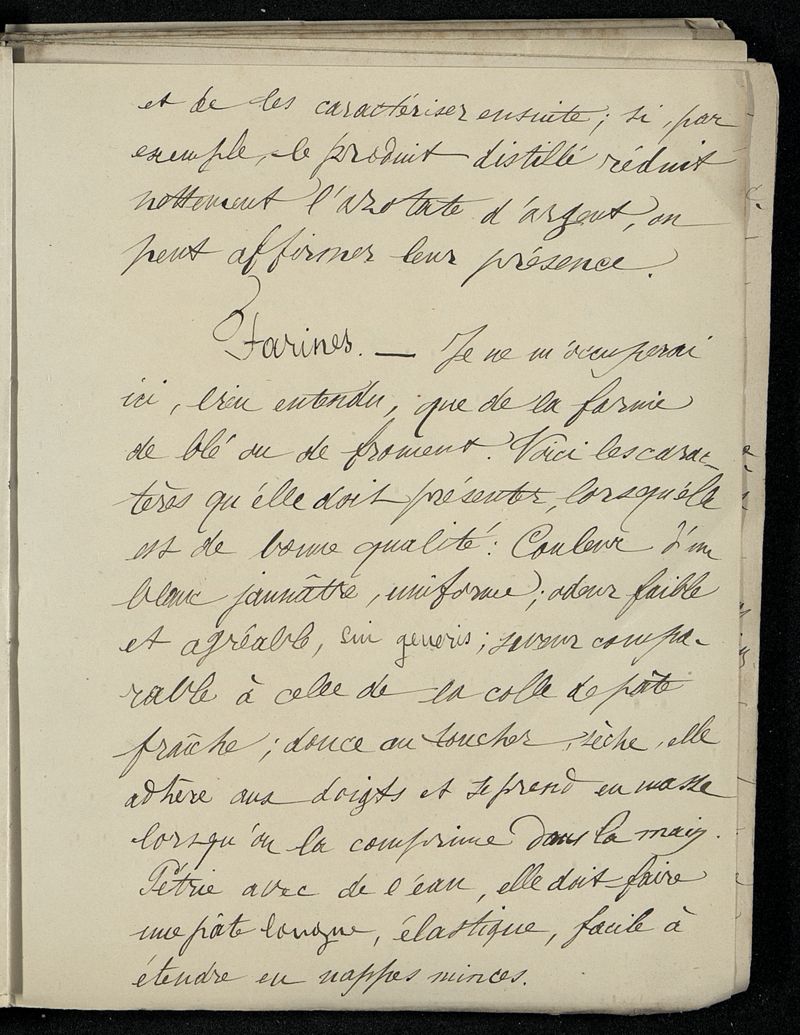 et de les caractériser ensuite ; si, par
exemple, le produit distillé réduit
nettement l'azotate d'argent, on
peut affirmer leur présence.
Farines. — Je ne m'occuperai
ici, bien entendu, que de la farine
de blé ou de froment. Voici les carac-
tères qu'elle doit présenter, lorsqu'elle
est de bonne qualité : Couleur d'un
blanc jaunâtre, uniforme ; odeur faible
et agréable, sui generis ; saveur compa-
rable à celle de la colle de pâte
fraîche ; douce au toucher, sèche, elle
adhère aux doigts et se prend en masse
lorsqu'on la comprime dans la main.
Pétrie avec de l'eau, elle doit faire
une pâte longue, élastique, facile à
étendre en nappes minces.